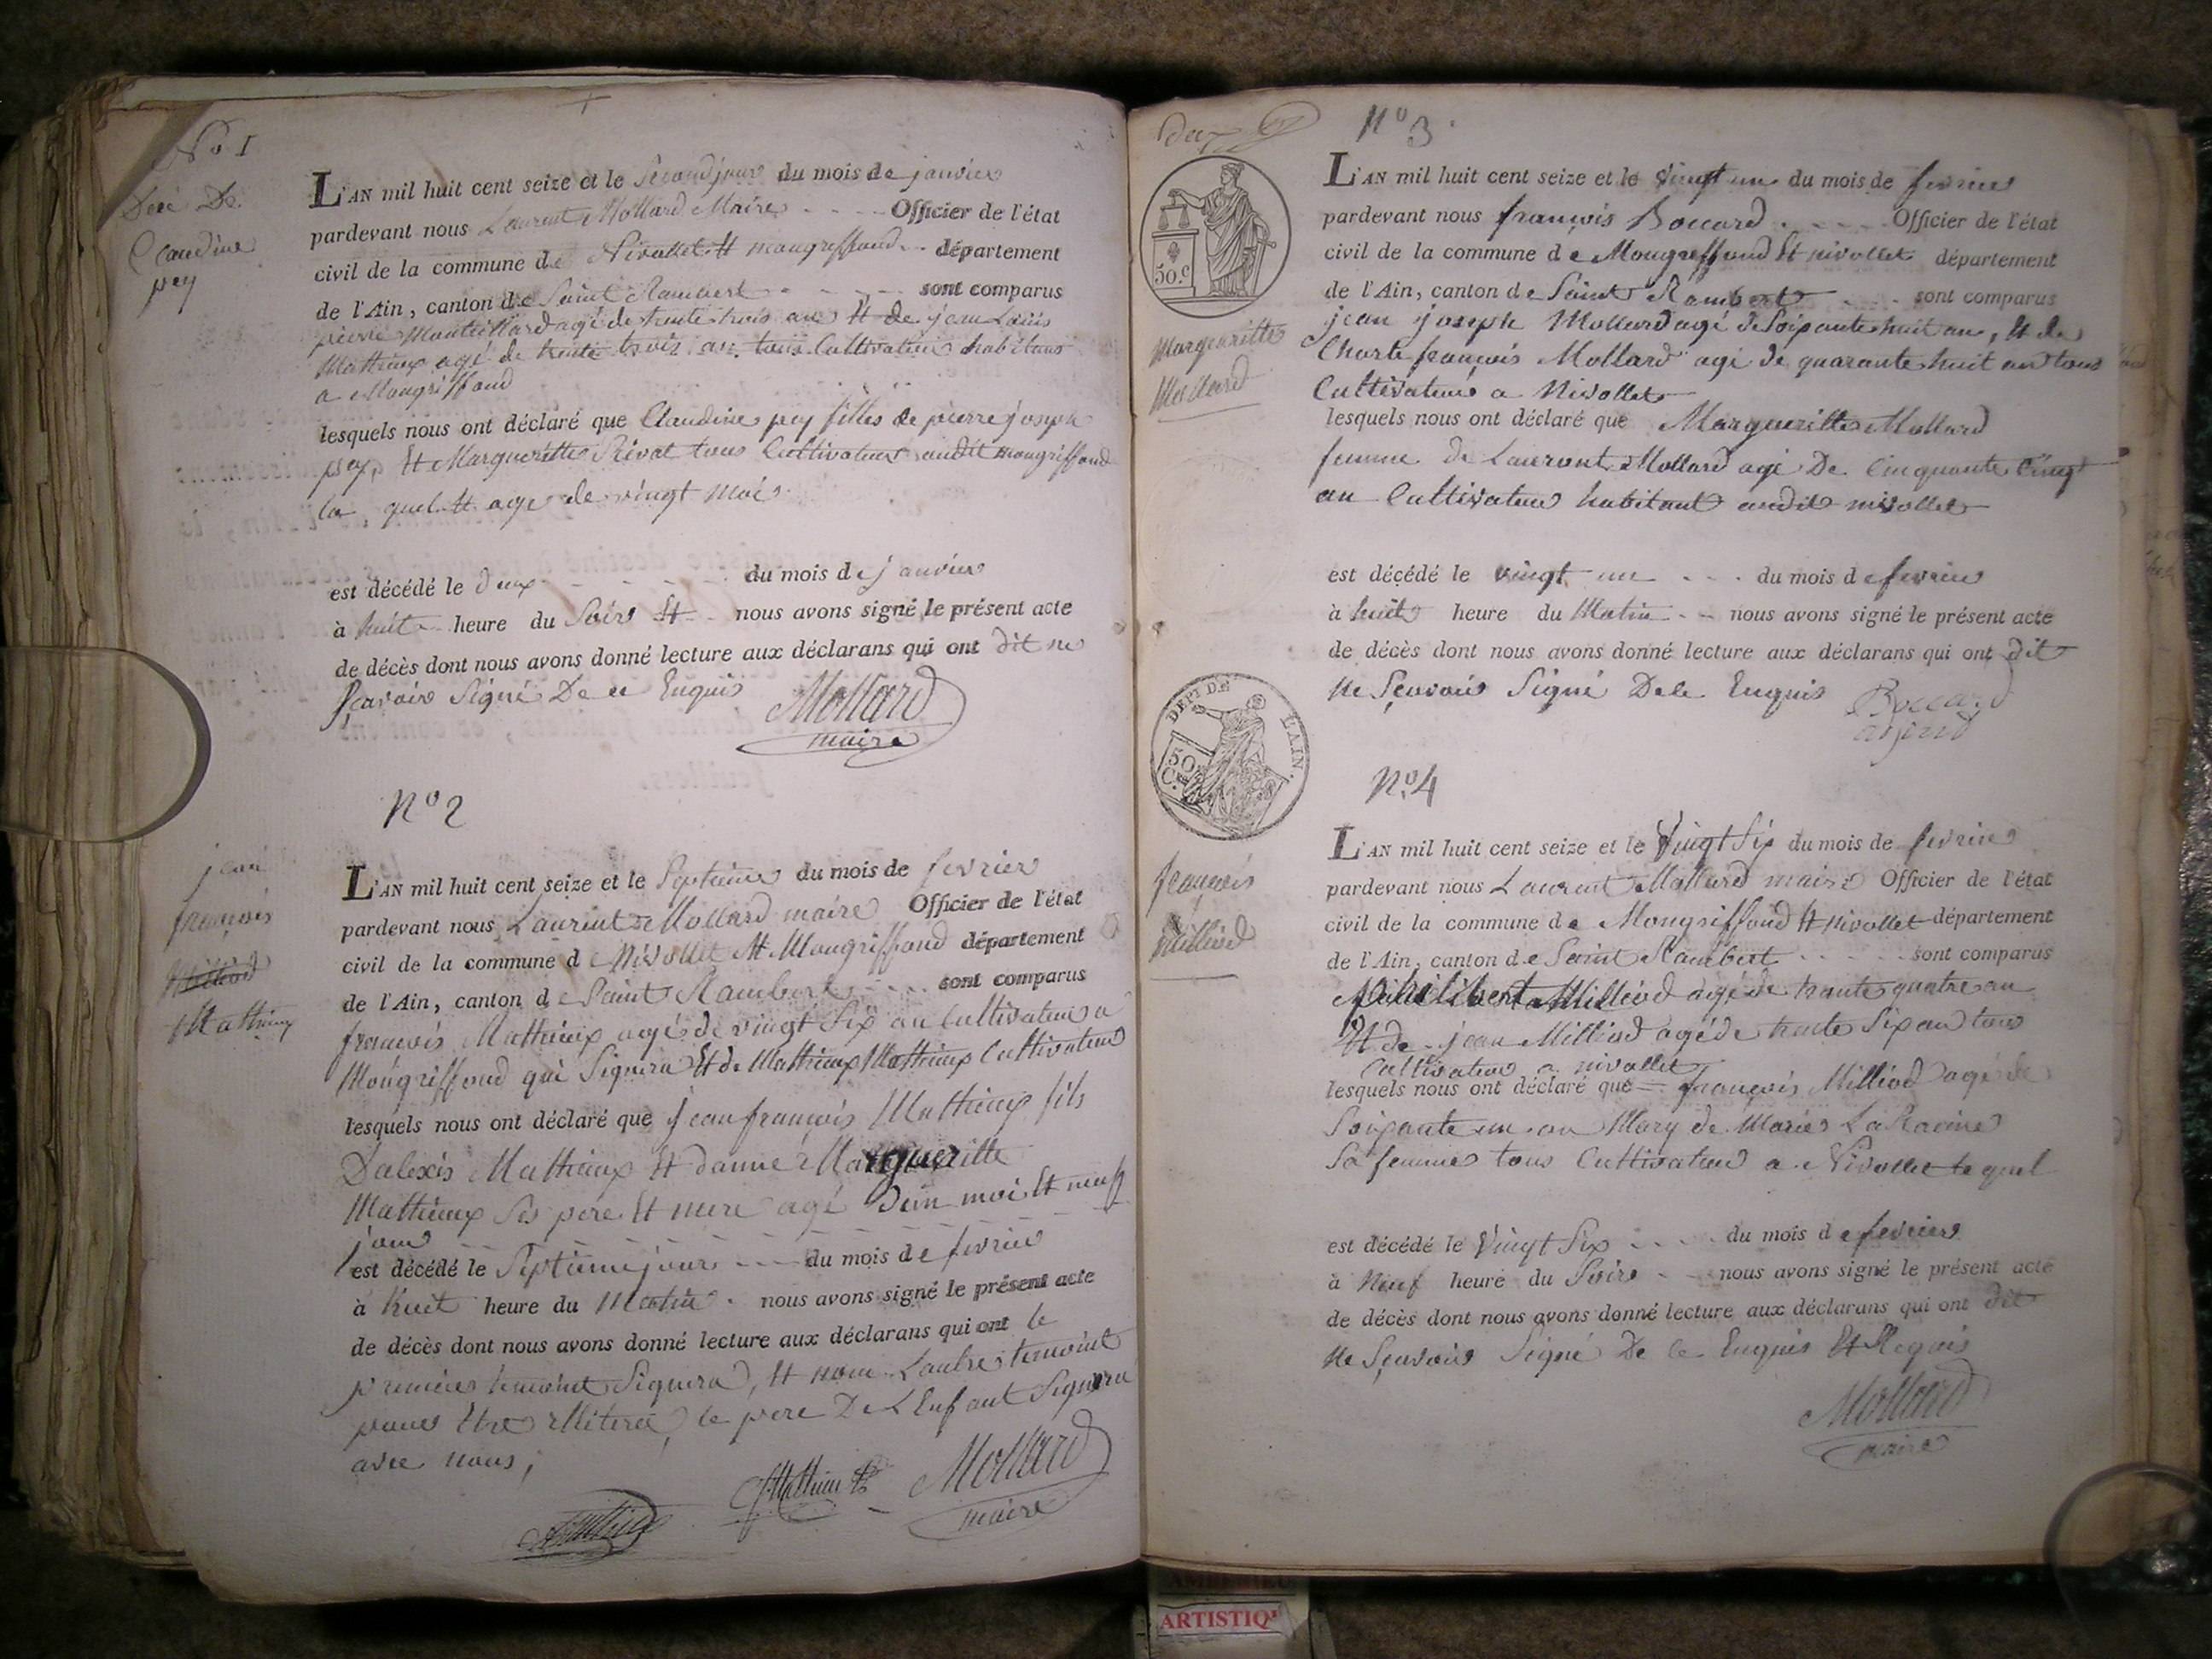 No 1
Décé De
Claudine
pey
L'AN mil huit cent seize et le Second jour du mois de janvier
pardevant nous Laurent Mollard Maire Officier de l'état
civil de la commune de Nivollet Et mongriffond département
de l'Ain, canton de Saint Rambert sont comparus
pierre Monteillard agé de trente trois ans Et de jean Louis
Mathieux agé de trente trois an tous Cultivateur habitans
a Mongriffond
lesquels nous ont déclaré que Claudine pey filles de pierre joseph
pey, Et Margueritte Privat tous Cultivateur audit mongriffond
la quel Et age de vingt mois
est décédé le deux du mois de janvier
à huit heure du Soirs Et nous avons signé le présent acte
de décès dont nous avons donné lecture aux déclarans qui ont dit ne
Sçavoir Signé De ce Enquis Mollard
maire
No 2
jean
françois
Milliod
Mathieux
L'AN mil huit cent seize et le Septieme du mois de fevrier
pardevant nous Laurent Mollard maire Officier de l'état
civil de la commune d Nivollet Et Mongriffond département
de l'Ain, canton de Saint Rambert sont comparus
françois Mathieux agé de vingt Six an Cultivateur a
Mongriffond qui Signera Et de Mathieux Mathieux Cultivateur
lesquels nous ont déclaré que jean françois Mathieux fils
Dalexis Mathieux Et danne Margueritte
Mathieux Ses pere Et mere agé dun moi Et neuf
jour
est décédé le Septieme jour du mois de fevrier
à huit heure du Matin nous avons signé le présent acte
de décès dont nous avons donné lecture aux déclarans qui ont le
premier temoint Signera, Et non Lautre temoint
pour Etre illiteré, le pere De LEnfant Signera
avec nous,
Mollard
maire
No 3
50.c
Margueritte
Mollard
L'AN mil huit cent seize et le vingt un du mois de fevrier
pardevant nous françois Boccard Officier de l'état
civil de la commune de Mongriffond Et nivollet département
de l'Ain, canton de Saint Rambert sont comparus
jean joseph Mollard agé de Soixante huit an, Et de
Charle françois Mollard agé de quarante huit an tous
Cultivateur a Nivollet
lesquels nous ont déclaré que Margueritte Mollard
femme de Laurent Mollard agé De Cinquante Cinq
an Cultivateur habitant audit nivollet
est décédé le vingt un du mois de fevrier
à huit heure du Matin nous avons signé le présent acte
de décès dont nous avons donné lecture aux déclarans qui ont dit
Ne Sçavoir Signé De le Enquis Boccard
adjoind
DEPT DE L'AIN.
50 C.
No 4
françois
Milliod
L'AN mil huit cent seize et le Vingt Six du mois de fevrier
pardevant nous Laurent Mollard maire Officier de l'état
civil de la commune de Mongriffond Et nivollet département
de l'Ain, canton de Saint Rambert sont comparus
philibert Milliod agé de trante quatre an
Et de jean Milliod agé de trente Six an tous
Cultivateur a nivollet
lesquels nous ont déclaré que françois Milliod agé de
Soixante un an Mary de Maries La Racine
Sa femme tous Cultivateur a Nivollet le quel
est décédé le Vingt Six du mois de fevrier
à Neuf heure du Soirs nous avons signé le présent acte
de décès dont nous avons donné lecture aux déclarans qui ont dit
Ne Sçavoir Signé De ce Enquis Et Requis
Mollard
maire
ARTISTIQ